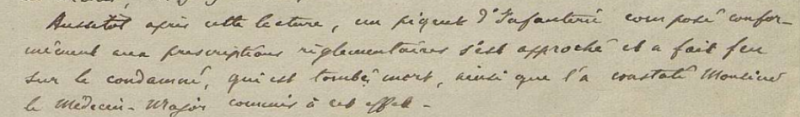 Aussitôt après cette lecture, un piquet d'Infanterie composé confor-
mément aux prescriptions réglementaires s'est approché et a fait feu
sur le condamné, qui est tombé mort, ainsi que l'a constaté Monsieur
le Médecin-Major commis à cet effet.-